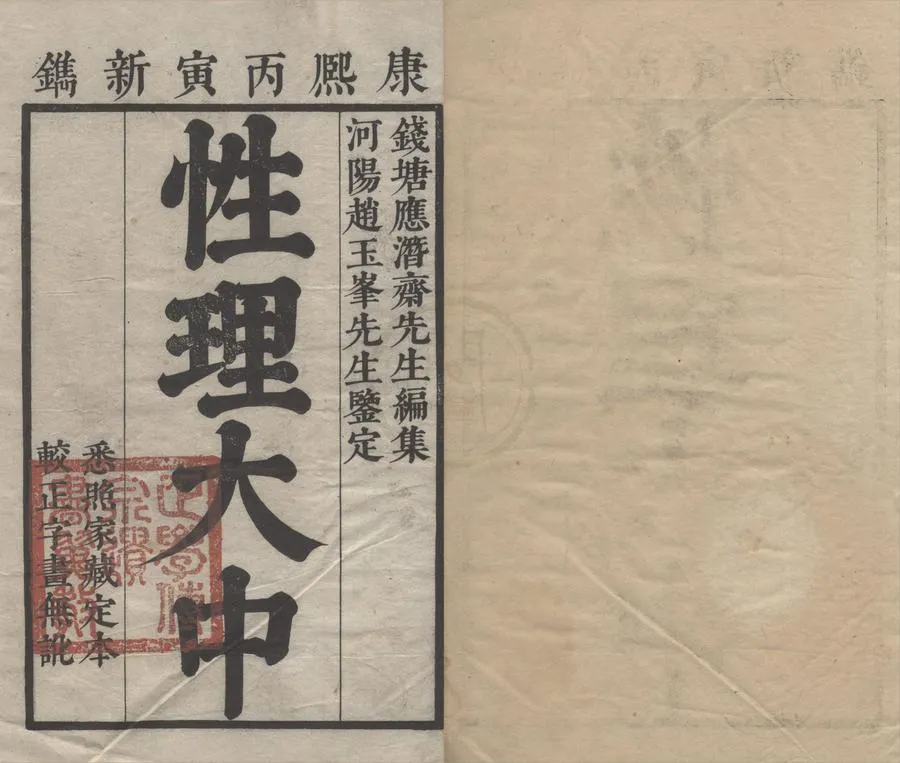 康熙丙寅新鐫
錢塘應潛齋先生編集
河陽趙玉峯先生鑒定
性理大中
悉照家藏定本
較正字畫無訛